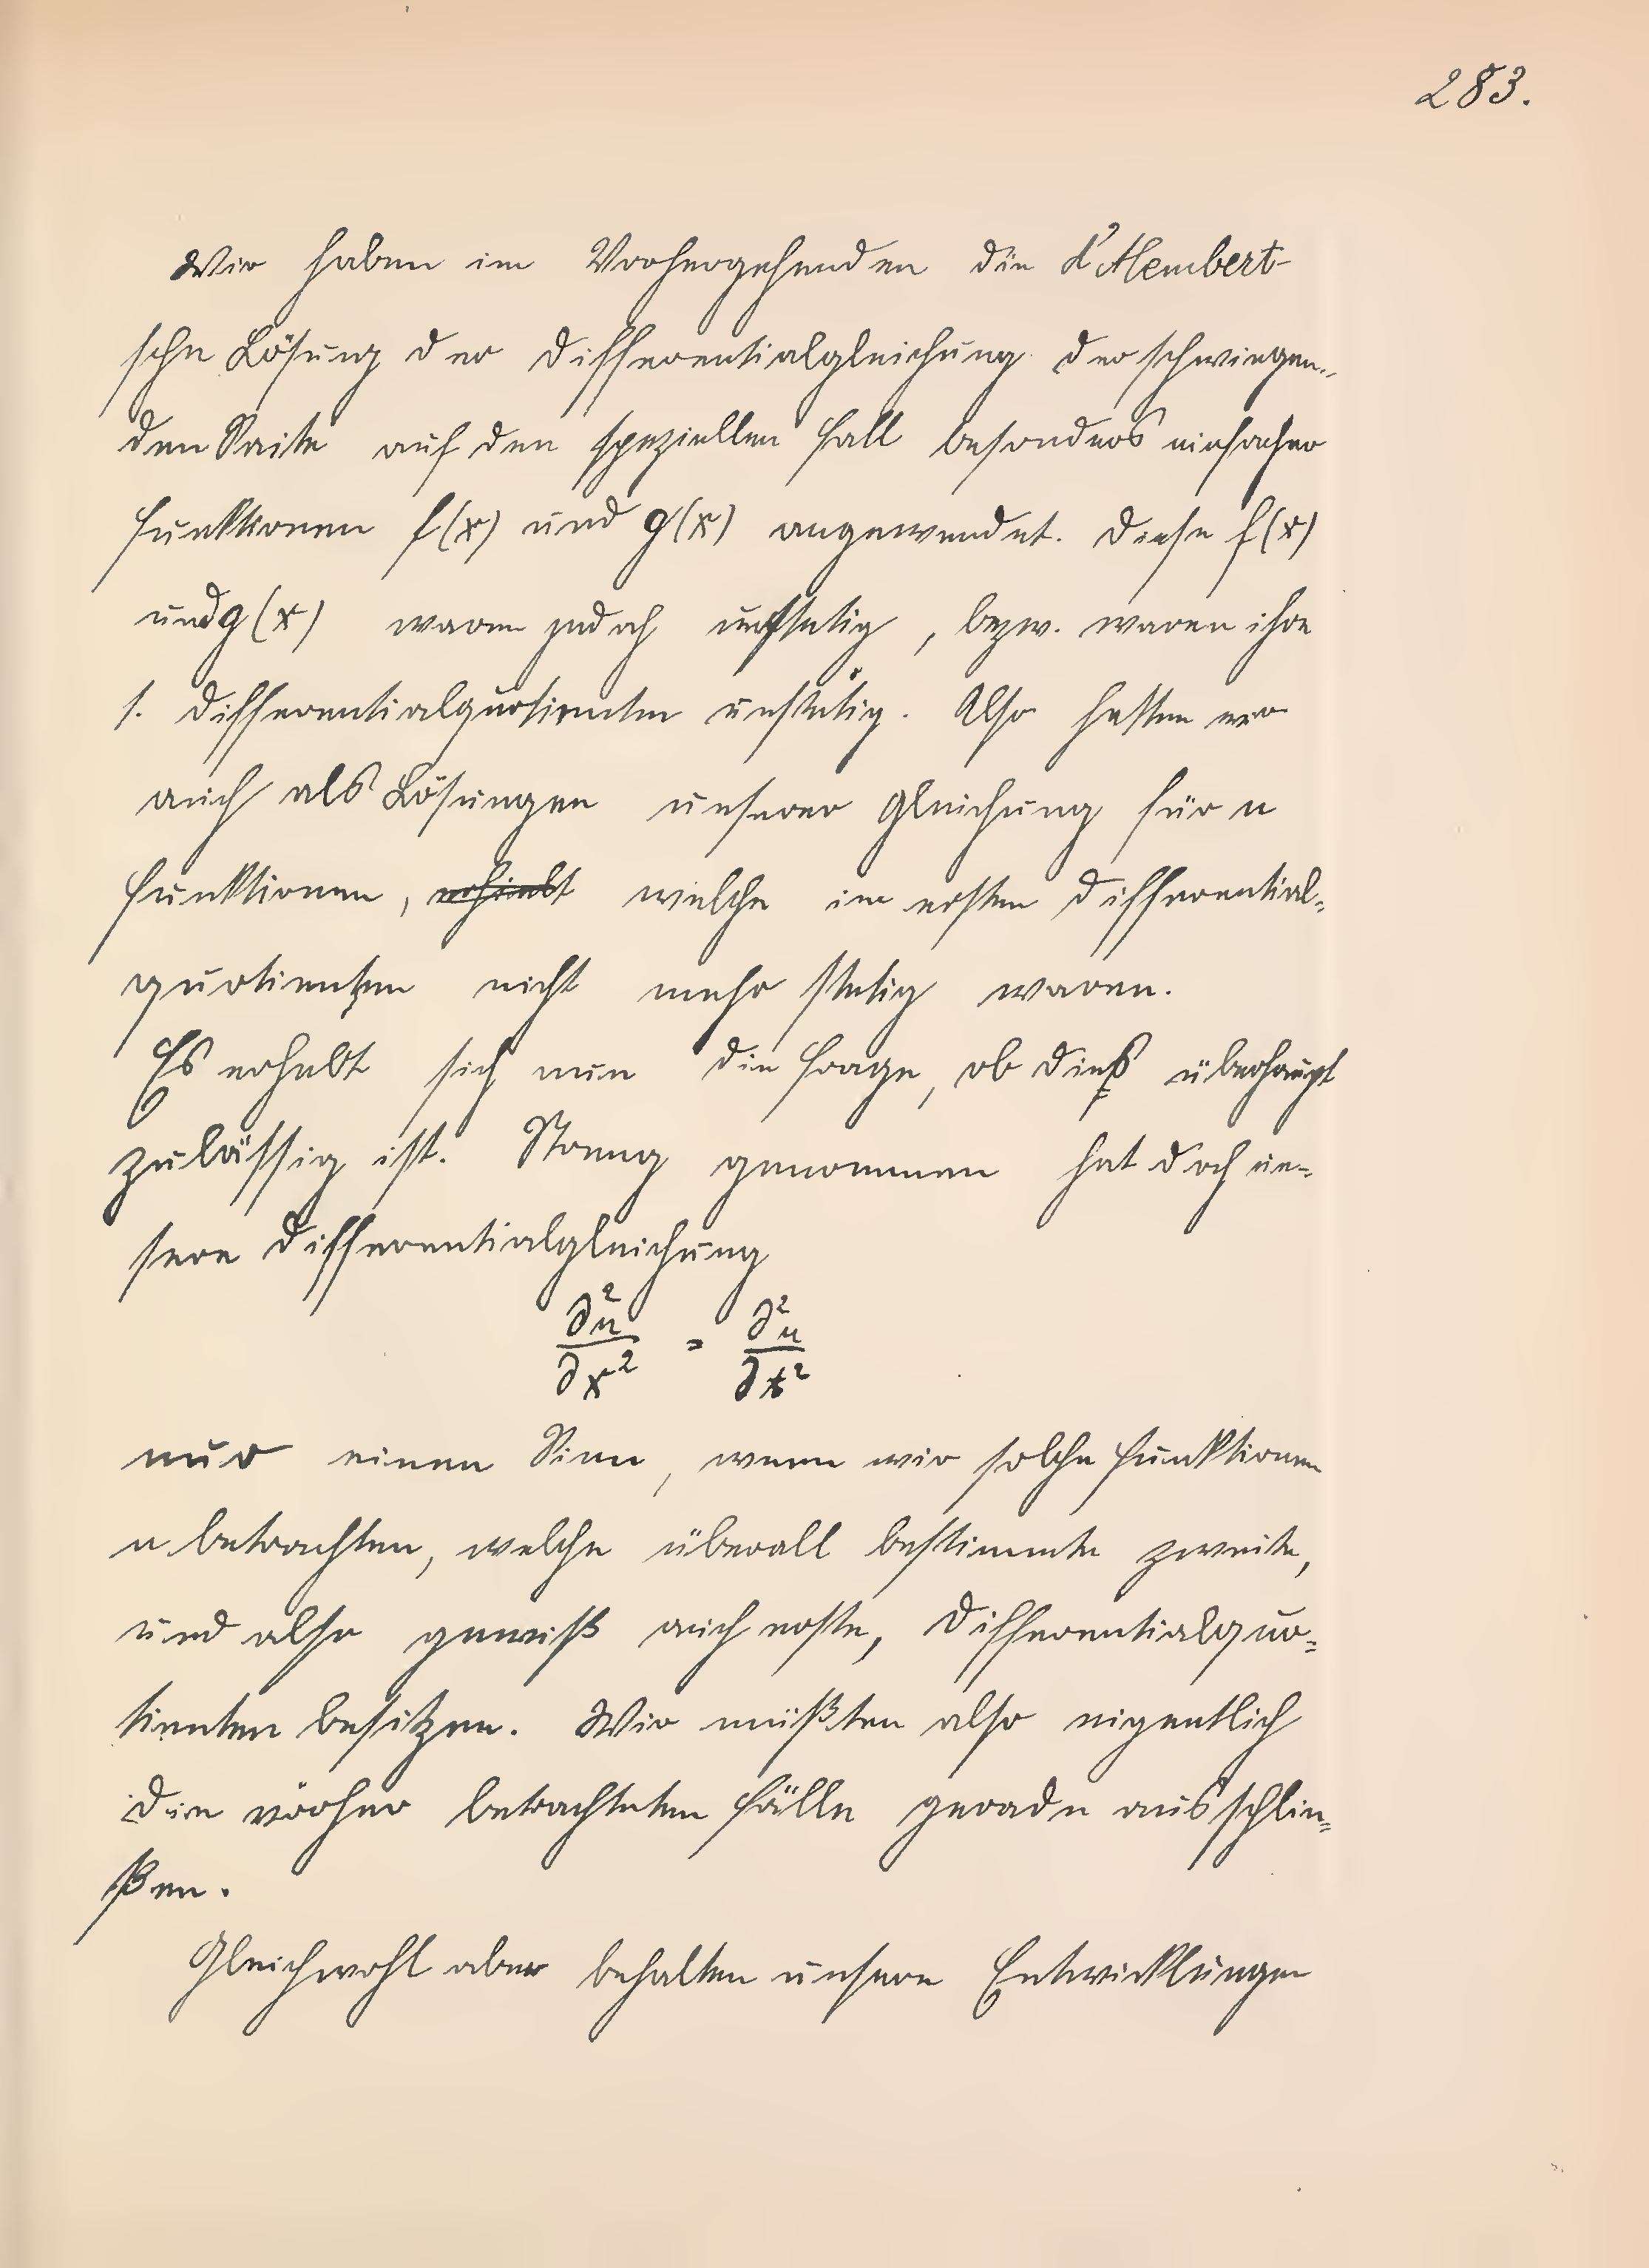 283.
Wir haben im Vorhergehenden die d'Alembert-
sche Lösung der Differentialgleichung der schwingen-
den Saite auf den speziellen Fall besonders einfacher
Funktionen f(x) und g(x) angewendet. Diese f(x)
und g(x) waren jedoch unstetig, bezw. waren ihre
1. Differentialquotienten unstetig. Also hatten wir
auch als Lösungen unserer Gleichung für u
Funktionen, welche im ersten Differential-
quotienten nicht mehr stetig waren.
Es erhebt sich nun die Frage, ob dieß überhaupt
zulässig ist. Streng genommen hat doch un-
sere Differentialgleichung
∂²u/∂x² = ∂²u/∂t²
nur einen Sinn, wenn wir solche Funktionen
u betrachten, welche überall bestimmte zweite,
und also gewiß auch erste, Differentialquo-
tienten besitzen. Wir müßten also eigentlich
die vorher betrachteten Fälle gerade ausschlie-
ßen.
Gleichwohl aber behalten unsere Entwicklungen